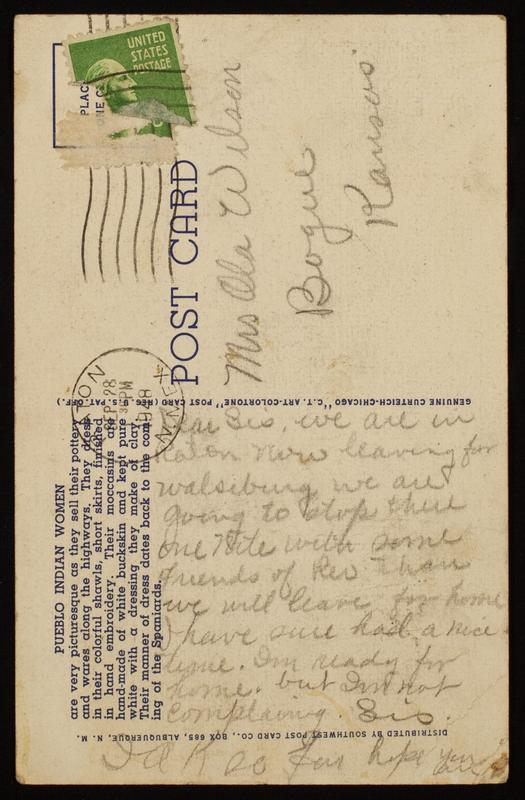 PLAC
ONE C
UNITED
STATES
POSTAGE
POST CARD
RATON
SEP 28
PM
1938
N.MEX.
Mrs Ola Wilson
Bogue
Kansas
GENUINE CURTEICH-CHICAGO "C.T. ART-COLORTONE" POST CARD (REG. U.S. PAT. OFF.)
PUEBLO INDIAN WOMEN
are very picturesque as they sell their pottery
and wares along the highways. They dress
in their colorful shawls, short skirts, finished
in hand embroidery. Their moccasins are
hand-made of white buckskin and kept pure
white with a dressing they make of clay.
Their manner of dress dates back to the com-
ing of the Spaniards.
Dear Sis, we are in
Raton now leaving for
walsiburg we are
going to stop there
one Nite with some
friends of Rev than
we will leave for home
I have sure had a nice
time. I'm ready for
home. but I'm not
complaing. Sis.
so far hope you
DISTRIBUTED BY SOUTHWEST POST CARD CO., BOX 685, ALBUQUERQUE, N. M.